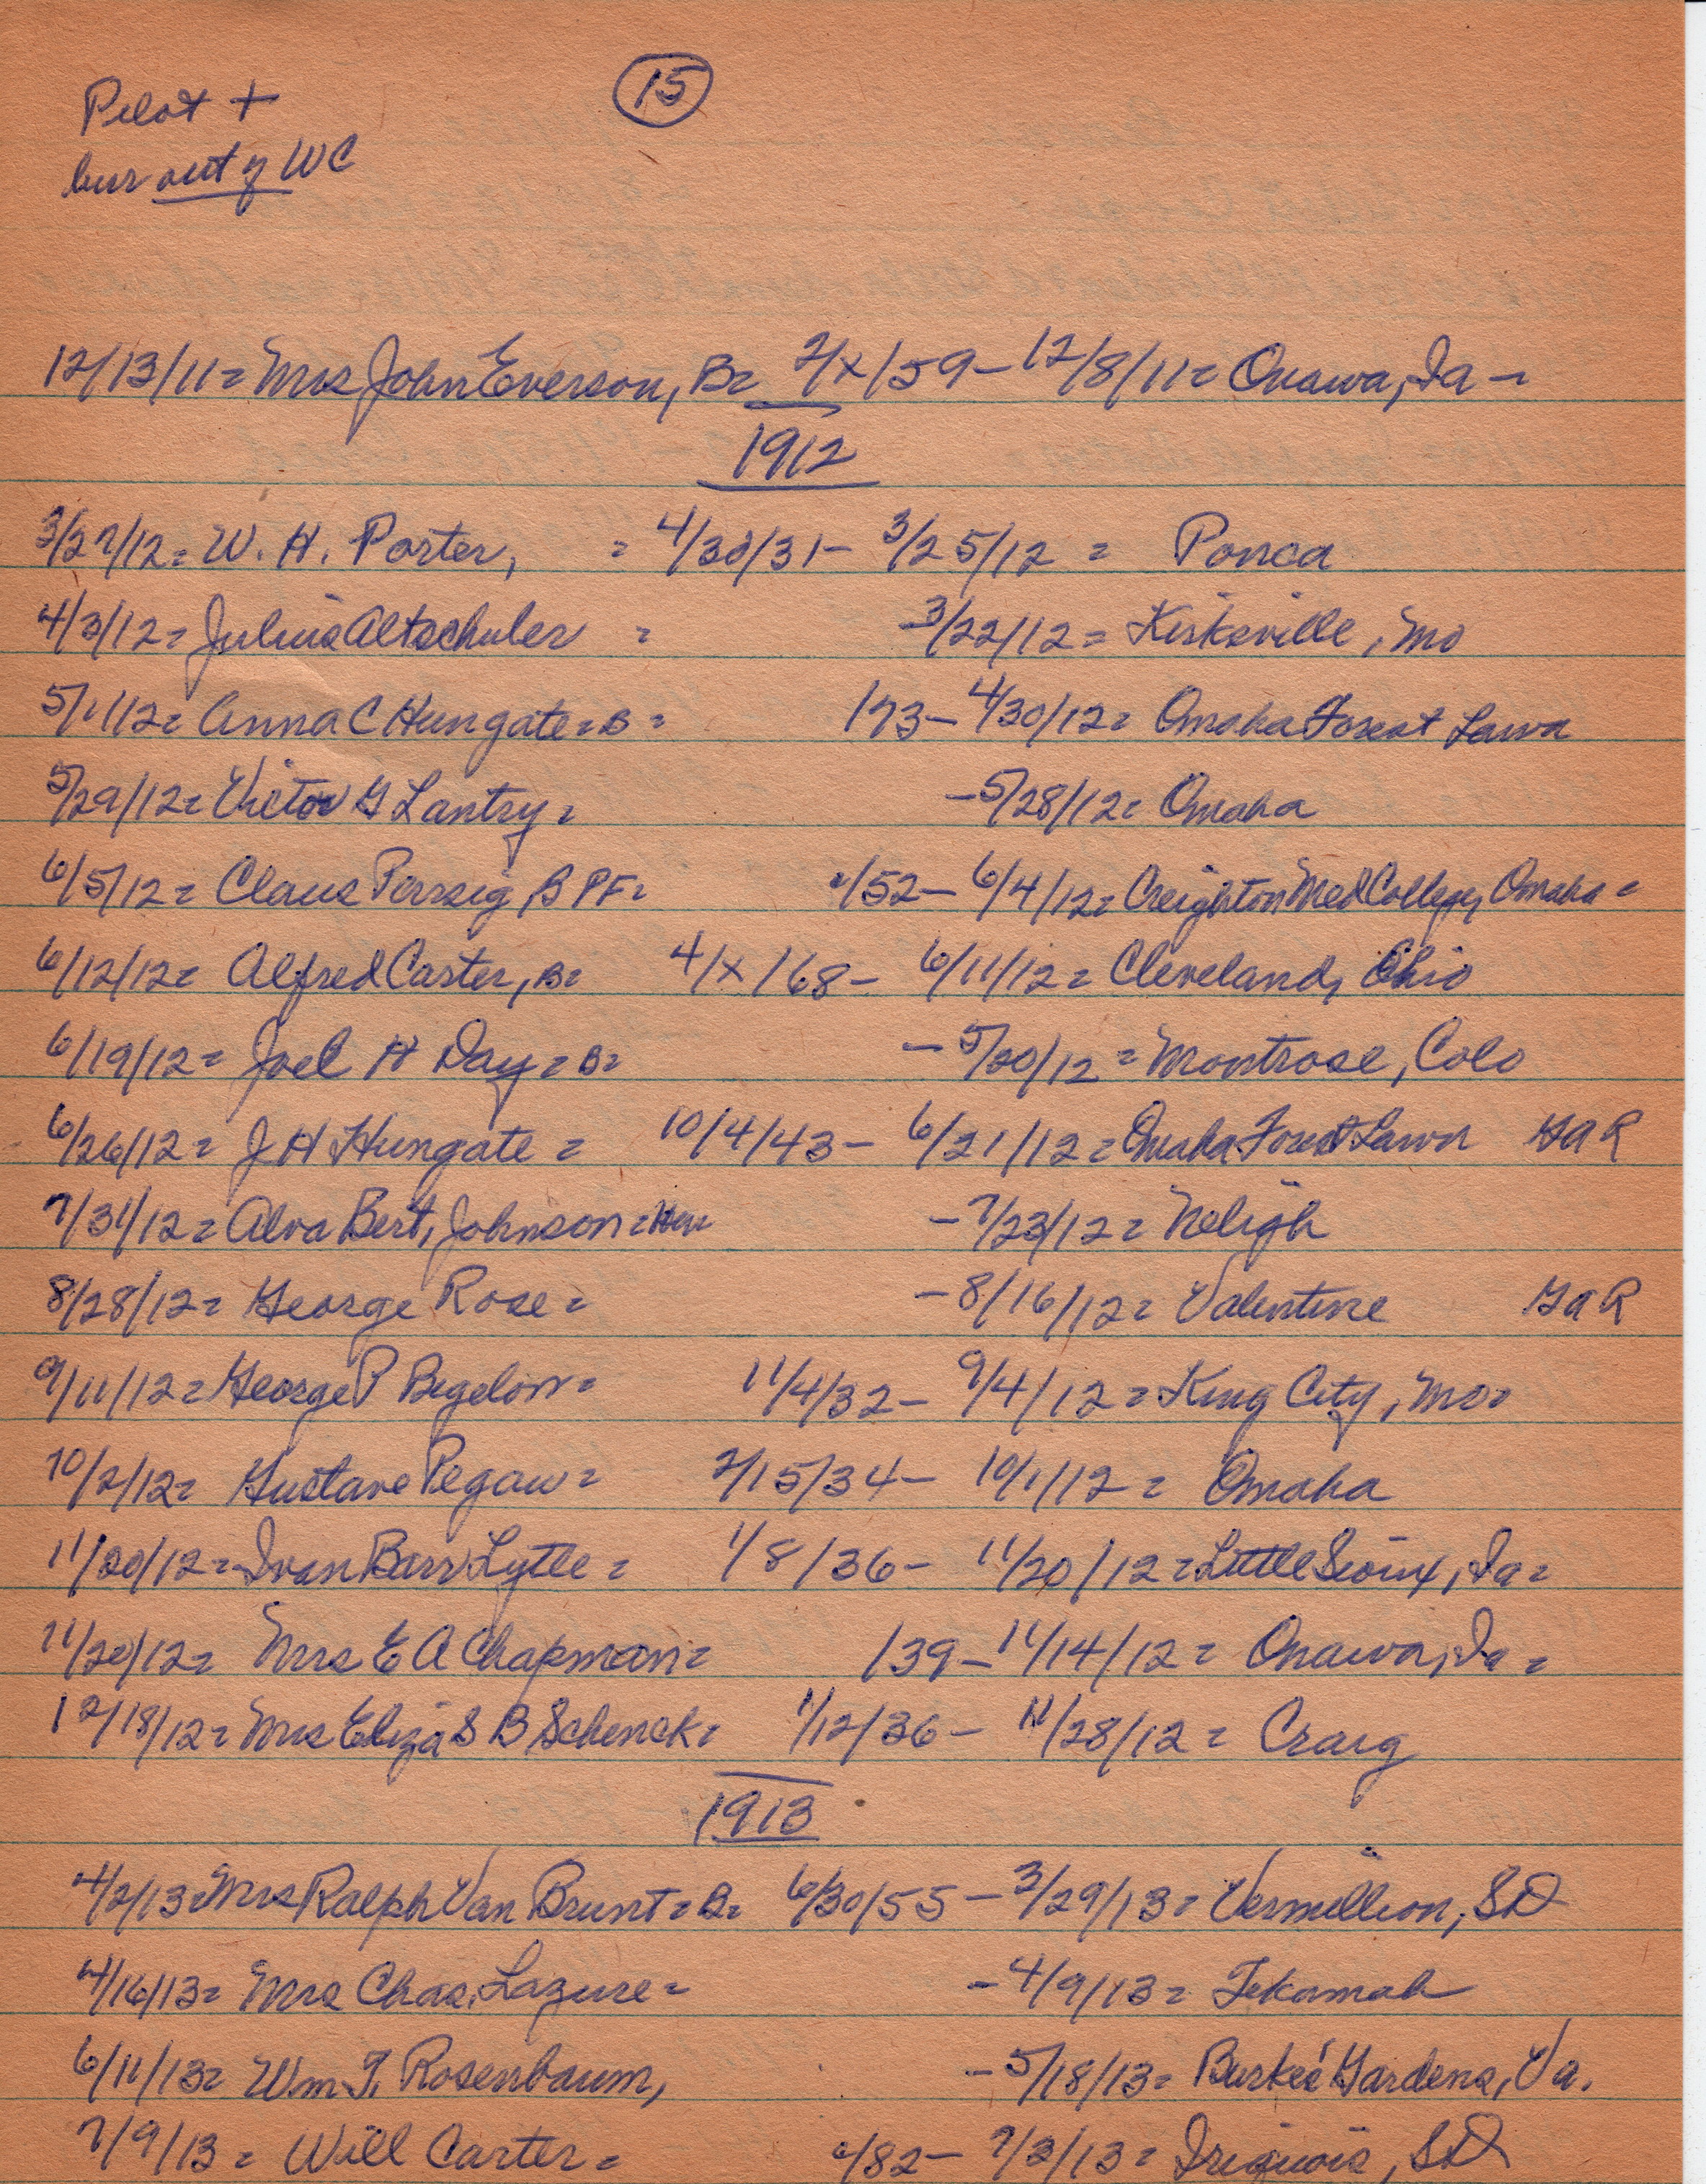 15
Pilot +
bur out of WC
12/13/11= Mrs John Everson, B= 2/x/59- 12/8/11= Onawa, Ia -
1912
3/27/12= W. H. Porter, = 4/30/31- 3/25/12 = Ponca
4/3/12= Julius Altschuler = 3/22/12= Kirksville, Mo
5/1/12= Anna C Hungate=B= /73- 4/30/12= Omaha Forest Lawn
5/29/12= Victor G Lantry= -5/28/12= Omaha
6/5/12= Claus Perssig, B PF= /52- 6/4/12= Creighton Med College, Omaha=
6/12/12= Alfred Carter, B= 4/x/68- 6/11/12= Cleveland, Ohio
6/19/12= Joel H Day=B= -5/20/12= Montrose, Colo
6/26/12= J H Hungate = 10/4/43- 6/21/12= Omaha Forest Lawn GAR
7/31/12= Alva Bert, Johnson= -7/23/12= Neligh
8/28/12= George Rose= -8/16/12= Valentine GAR
9/11/12= George P Bigelow= 11/4/32- 9/4/12= King City, Mo=
10/2/12= Gustave Pegau= 2/15/34- 10/1/12= Omaha
11/20/12= Ivan Barr Lytle= 1/8/36- 11/20/12= Little Sioux, Ia=
11/20/12= Mrs E A Chapman= /39- 11/14/12= Onawa, Ia=
12/18/12= Mrs Eliza S B Schenck= 1/12/36- 11/28/12= Craig
1913
4/2/13= Mrs Ralph Van Brunt=B= 6/30/55- 3/29/13= Vermillion, SD
4/16/13= Mrs Chas. Lazure= -4/9/13= Tekamah
6/11/13= Wm T. Rosenbaum, -5/18/13= Burkes' Gardens, Va.
7/9/13= Will Carter= /82- 7/3/13= Iriquois, SD